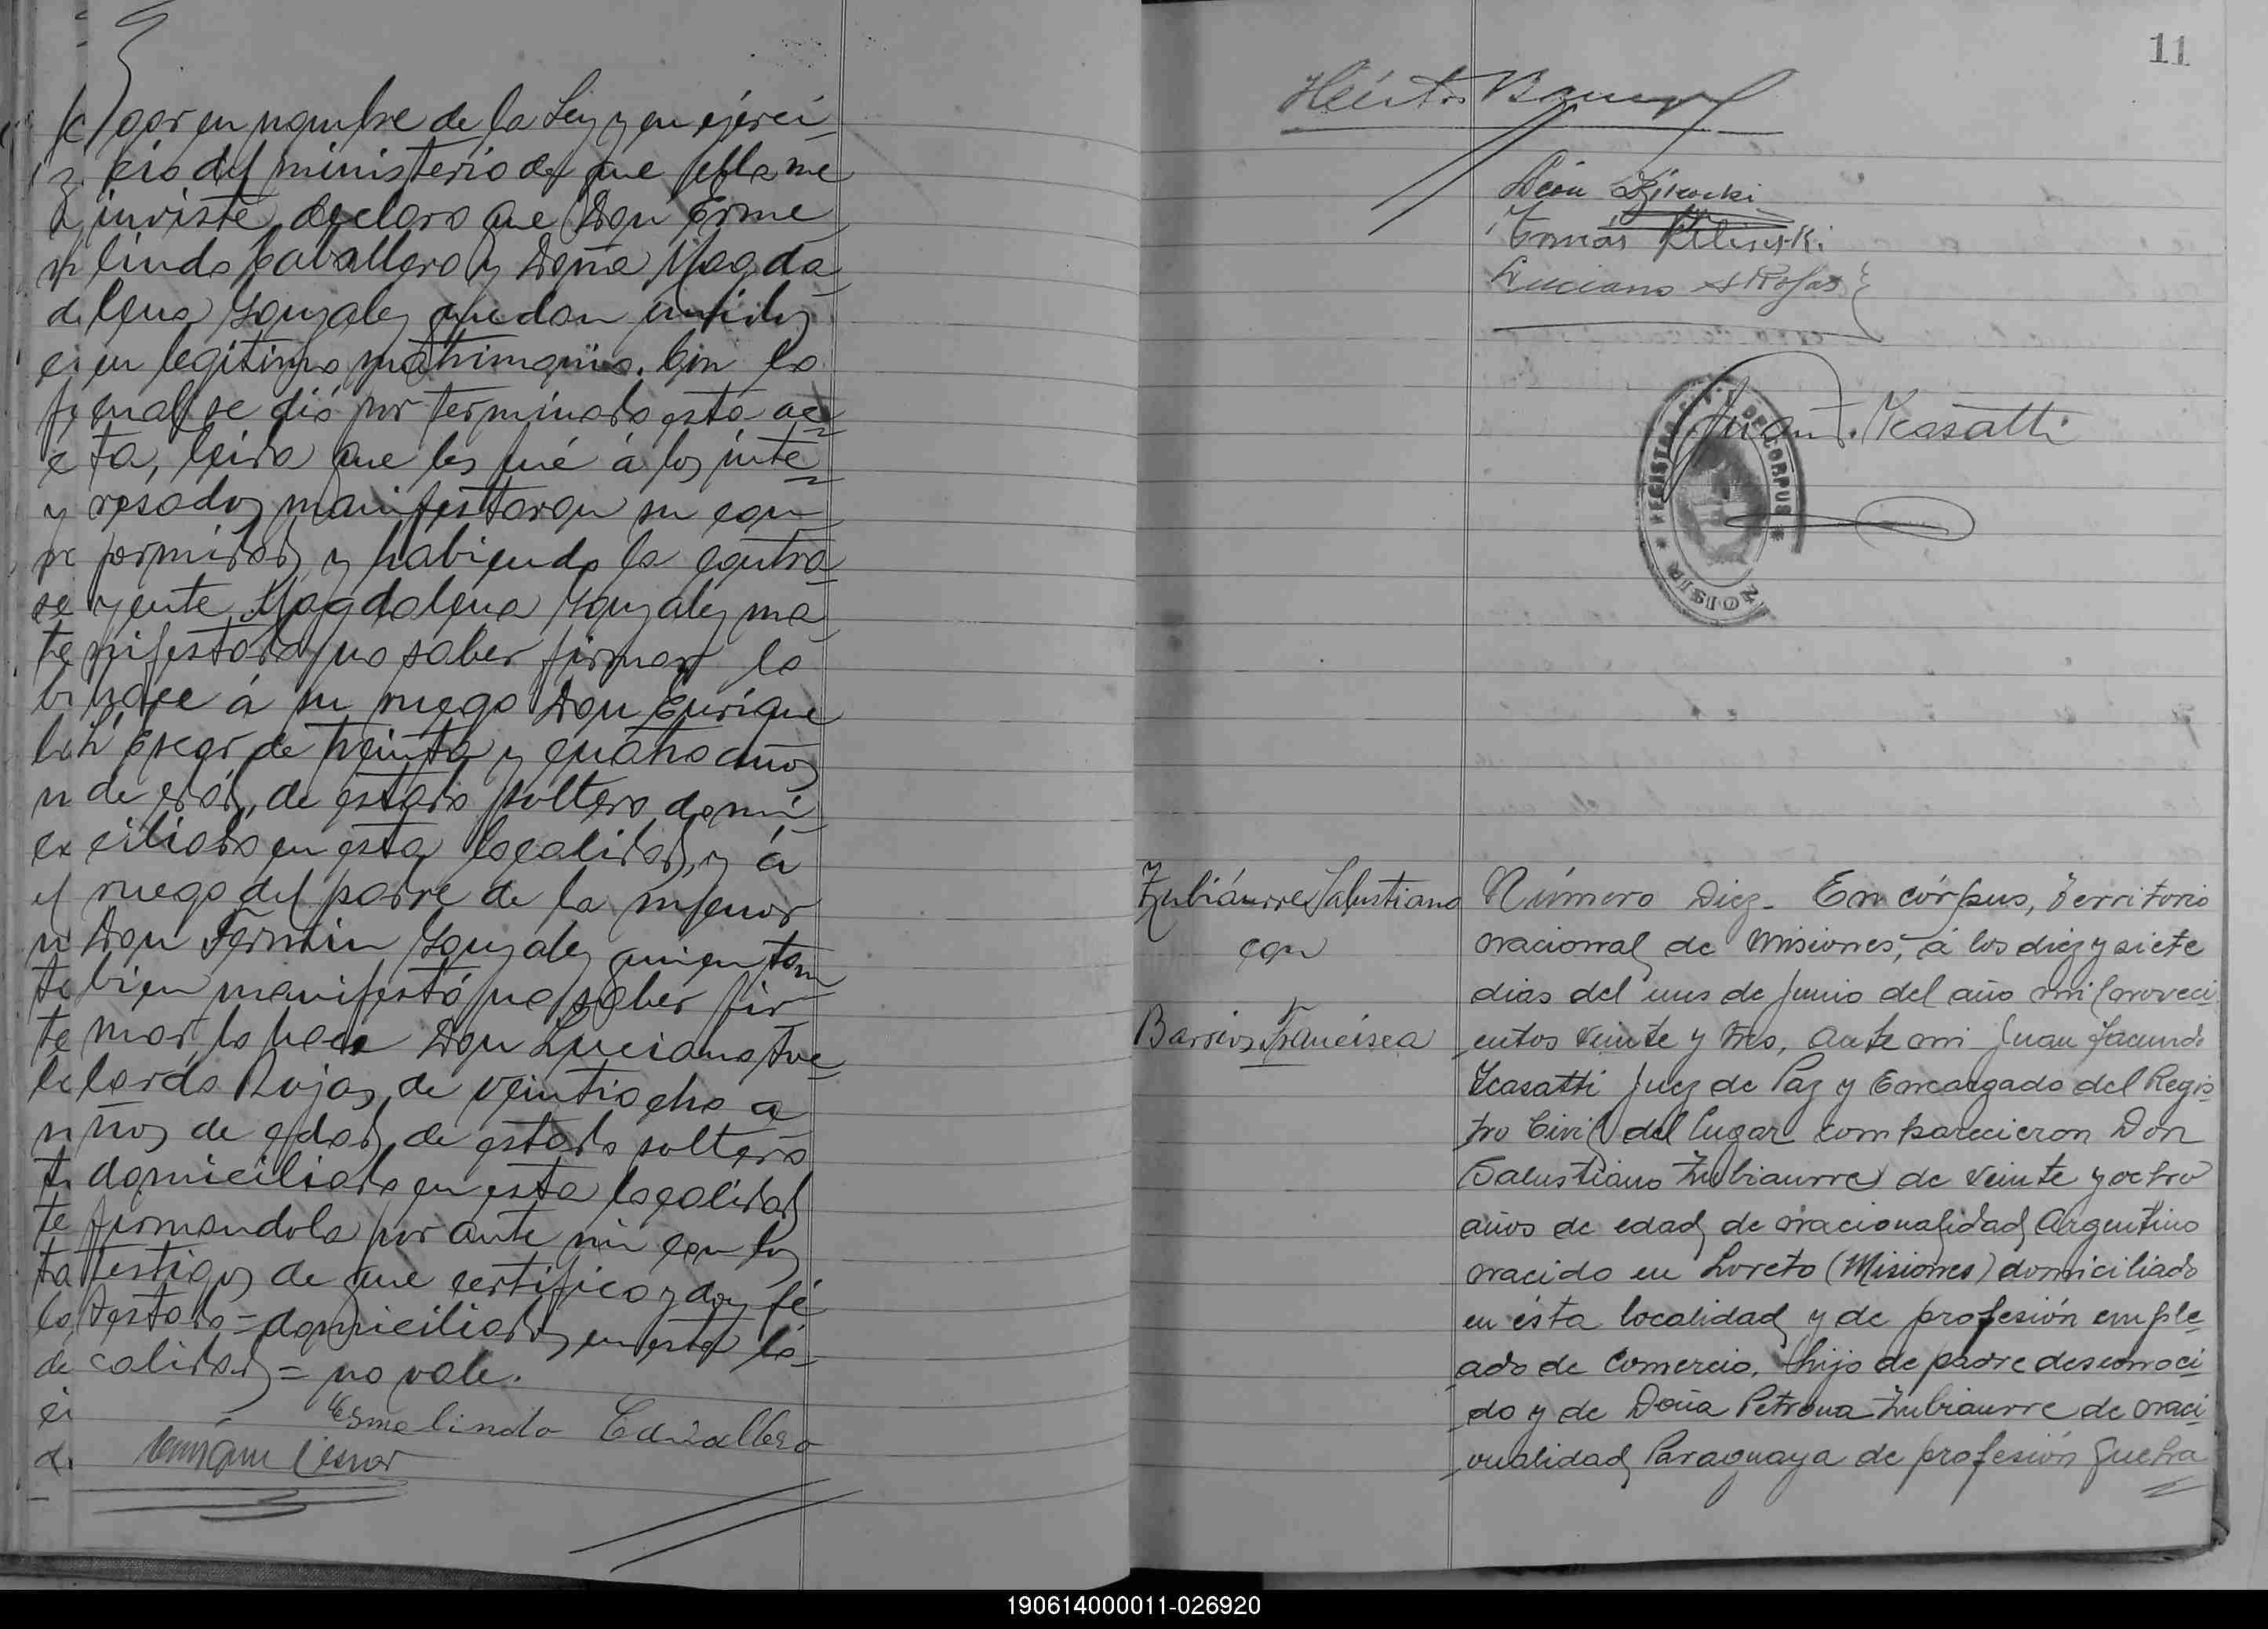 gar en nombre de la Ley y en ejerci
cio del ministerio de que ella me
inviste, declaro que Don Erme
lindo Caballero y Doña Magda
lena Gonzalez quedan unidos
en legitimo matrimonio. Con lo
cual se dió por terminado esta ac
ta, leida que les fué á los inte
resados manifestaron su con
formidad y habiendo la contra
yente Magdalena Gonzalez ma
nifestado no saber firmar lo
hace á su ruego Don Enrique
de treinta y cuatro años
de edad, de estado soltero domi
ciliado en esta localidad, y á
ruego del padre de la menor
Don Fermin Gonzalez quien tam
bien manifestó no saber fir
mar, lo hace Don Luciano Ave
lardo Rojas, de veintiocho a
ños de edad, de estado soltero
domiciliado en esta localidad
firmandola por ante mi con los
testigos de que certifico y doy fé
Testado = domiciliados en esta lo
calidad = no vale.
Ermelindo Caballero
11
Héctor
León
Tomás
Luciano A Rojas
Juan F. Icasatti
* REGISTRO DE CORPUS *
MISIONES
Zubiáurre Salustiano
con
Barrios Francisca
Número Diez- En córpus, Territorio
nacional de Misiones, á los diez y siete
dias del mes de Junio del año mil noveci
entos veinte y tres, ante mi Juan Facundo
Icasatti Juez de Paz y Encargado del Regis
tro Civil del Lugar comparecieron Don
Salustiano Zubiaurre de veinte y ocho
años de edad, de nacionalidad Argentino
nacido en Loreto (Misiones) domiciliado
en ésta localidad y de profesión emple
ado de Comercio, hijo de padre desconoci
do y de Doña Petrona Zubiaurre de naci
onalidad Paraguaya de profesión queha
190614000011-026920